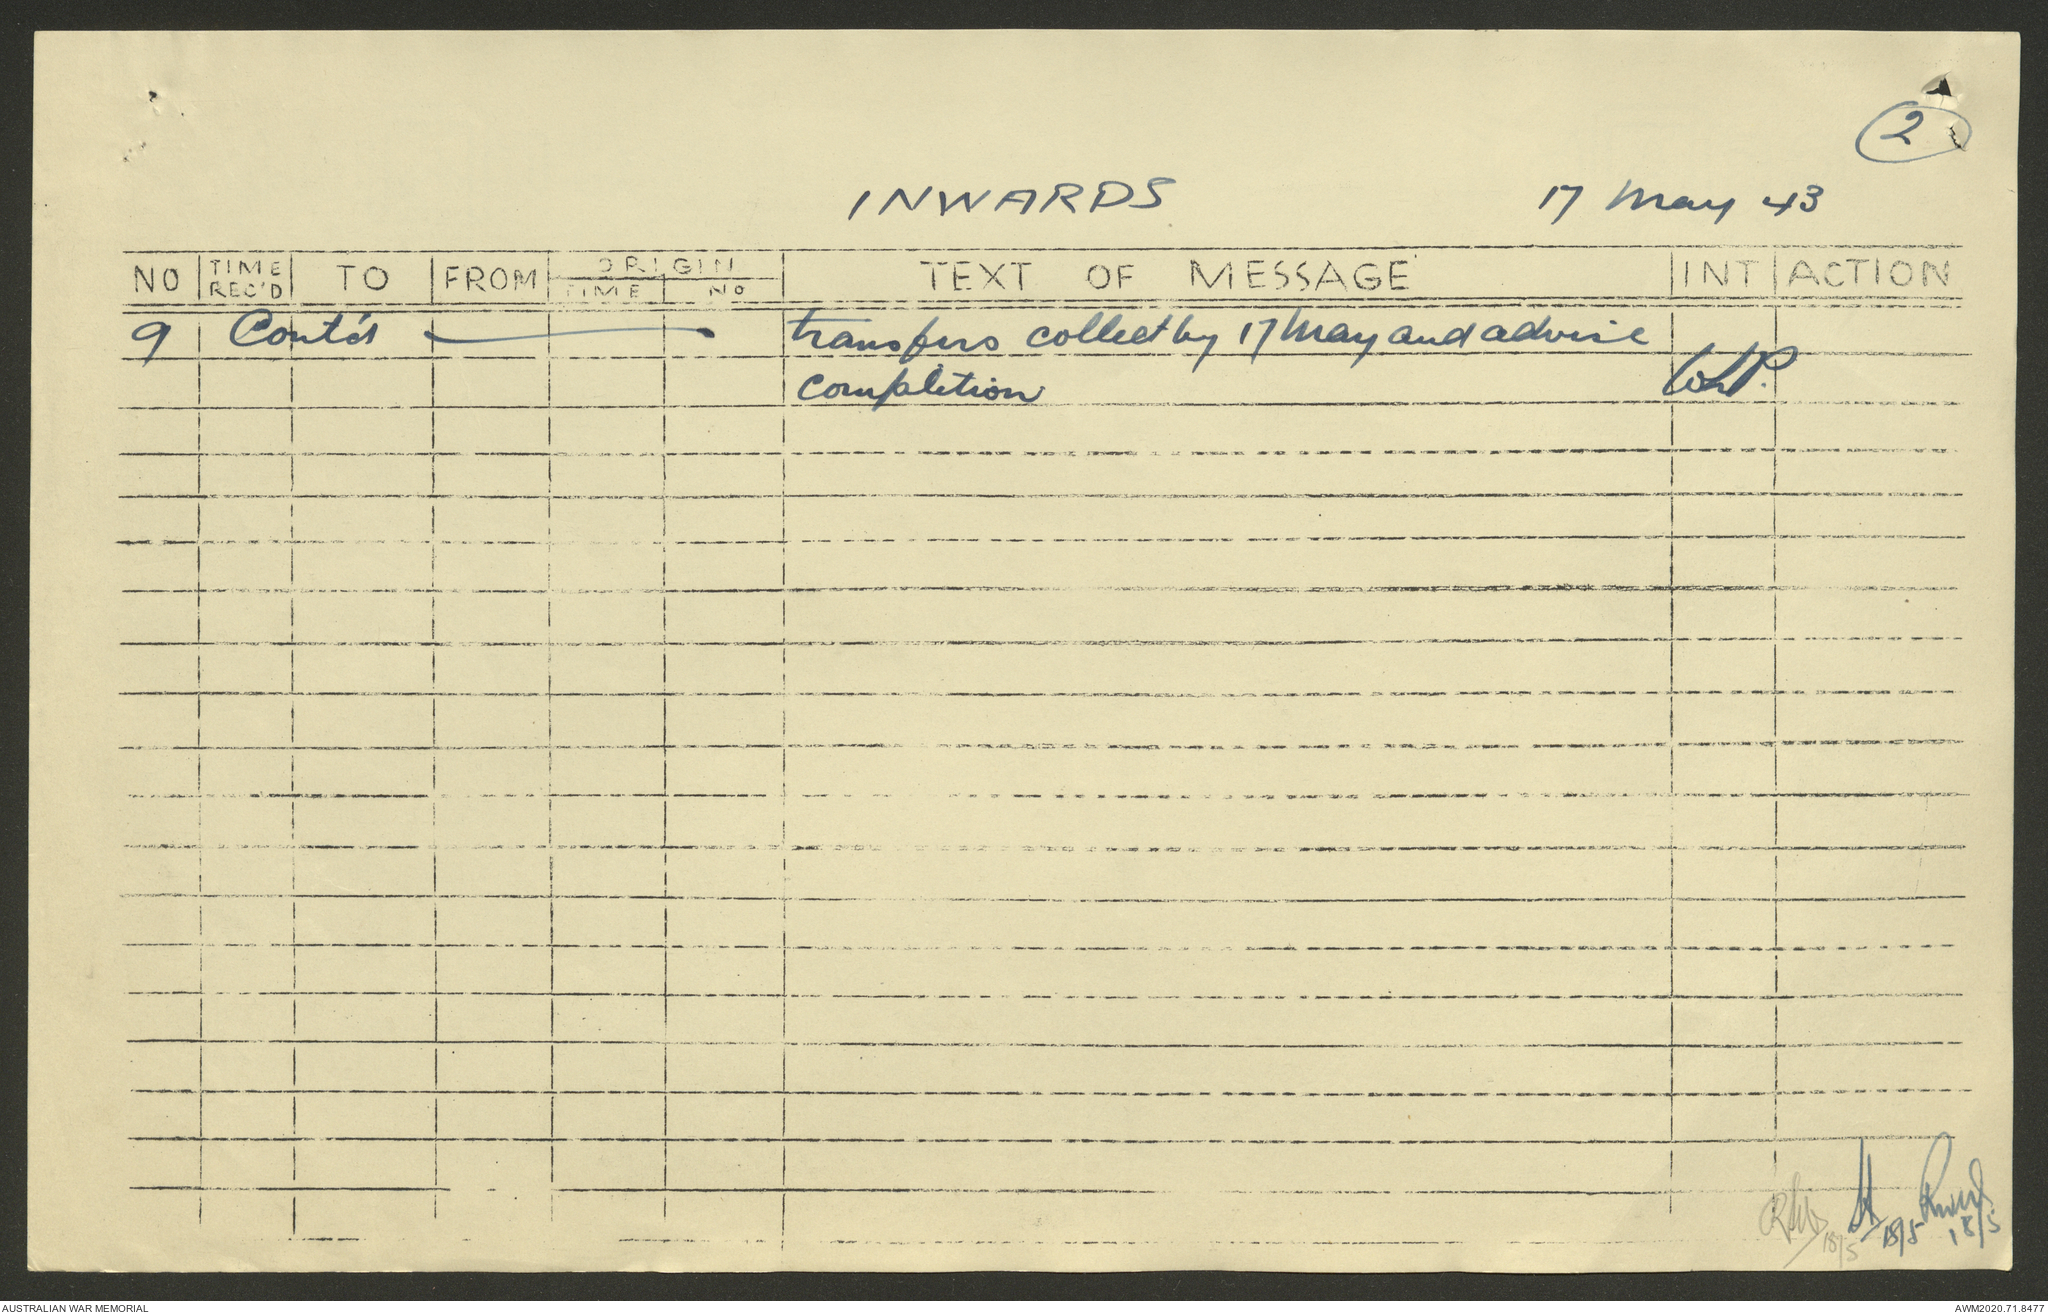 2
INWARDS 17 May 43
NO TIME REC'D TO FROM ORIGIN TIME No TEXT OF MESSAGE INT ACTION
9 Cont'd transfers collect by 17 May and advise
completion
18/5 18/5 18/5
AUSTRALIAN WAR MEMORIAL AWM2020.71.8477